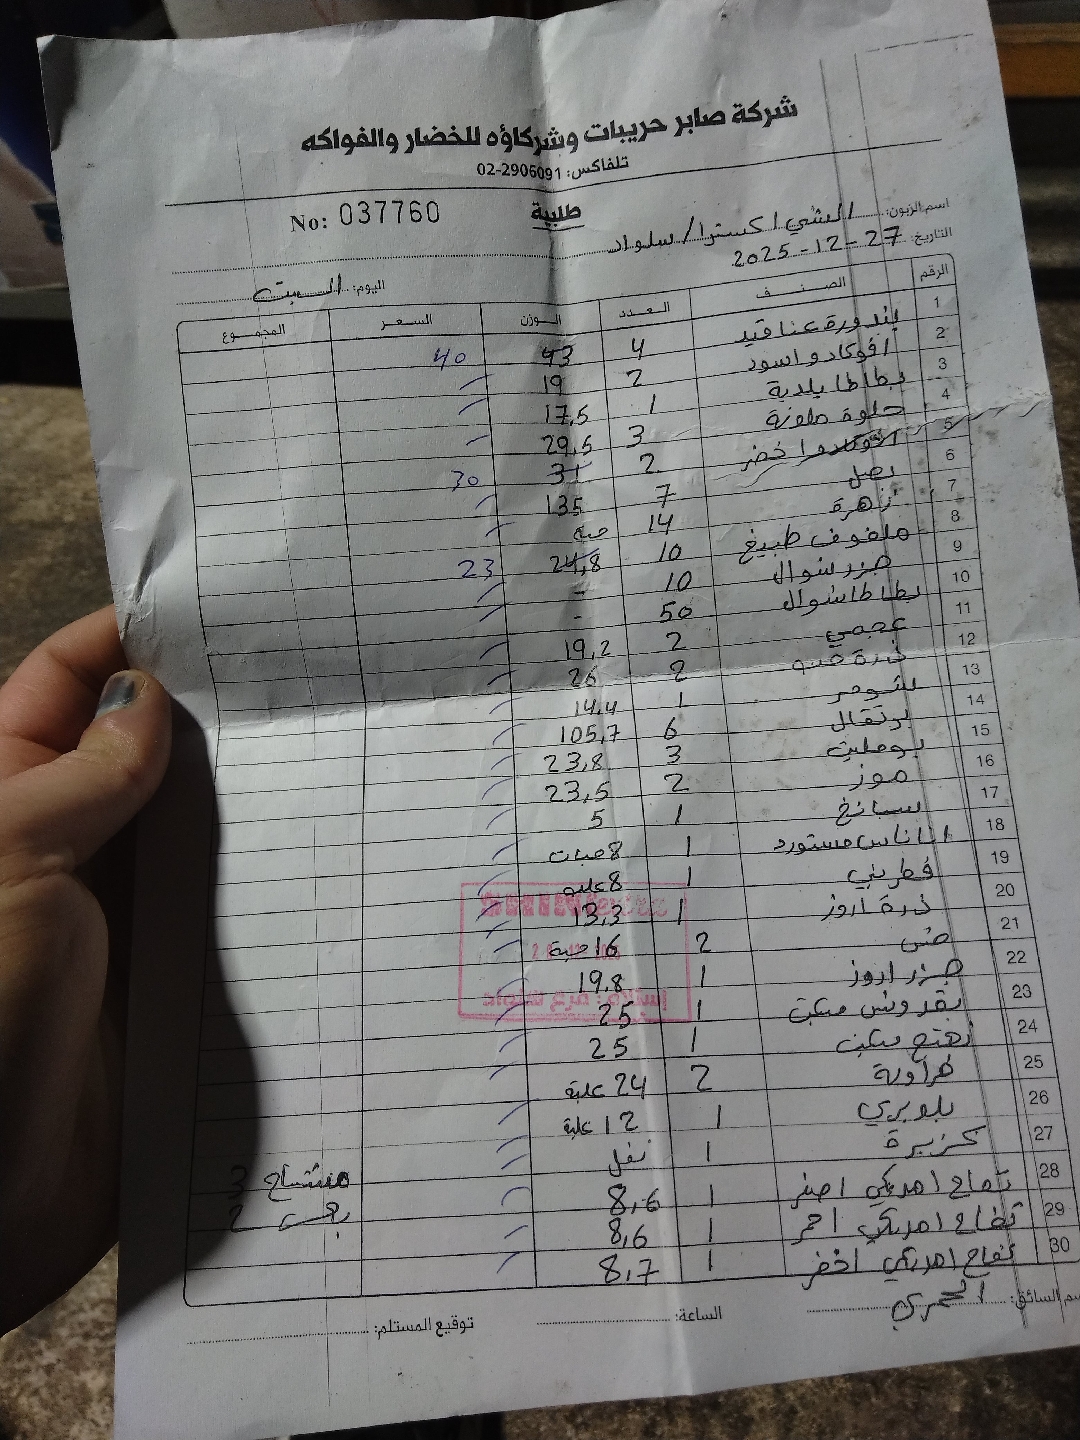 شركة صابر حريبات وشركاؤه للخضار والفواكه
تلفاكس: 02-2906091
طلبية
No: 037760
اسم الزبون: الشني اكسترا / سلواد
التاريخ: 27-12-2025
اليوم: السبت
الرقم الصنف العدد الوزن السعر المجموع
1 بندورة عناقيد 4 43 40
2 افوكادو اسود 2 19
3 بطاطا بلدية 1 17,5
4 حلوة ملونة 3 29,5
5 افوكادو اخضر 2 31 30
6 بصل 7 135
7 زهرة 14 حبة
8 ملفوف طبيخ 10 24,8 23
9 جزر شوال 10 -
10 بطاطا شوال 50 -
11 عجمي 2 19,2
12 ذرة 2 26
13 شومر 1 14,4
14 برتقال 6 105,7
15 بوملیت 3 23,8
16 موز 2 23,5
17 سبانخ 1 5
18 اناناس مستورد 1 8 حبات
19 فطريني 1 8 علبه
20 ذرة اروز 1 13,3
21 خس 2 16 حبة
22 جزر اروز 1 19,8
23 بقدونس مكبت 1 25
24 نعنع مكبت 1 25
25 فراولة 2 24 علبة
26 بلوبري 1 12 علبة
27 كزبرة 1 نفل
28 تفاح امريكي اصفر 1 8,6 مشتاح 3
29 تفاح امريكي احمر 1 8,6 2
30 تفاح امريكي اخضر 1 8,7
اسم السائق: العمري
الساعة:
توقيع المستلم: